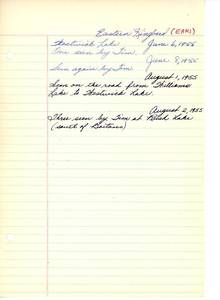 Eastern Kingbird (EAKI)
Hostwick Lake June 6, 1955
One seen by Jim.
Seen again by Jim June 8, 1955
August 1, 1955
Seen on the road from
Lake to Hostwick Lake.
August 2, 1955
Three seen by Jim at Lake
(south of